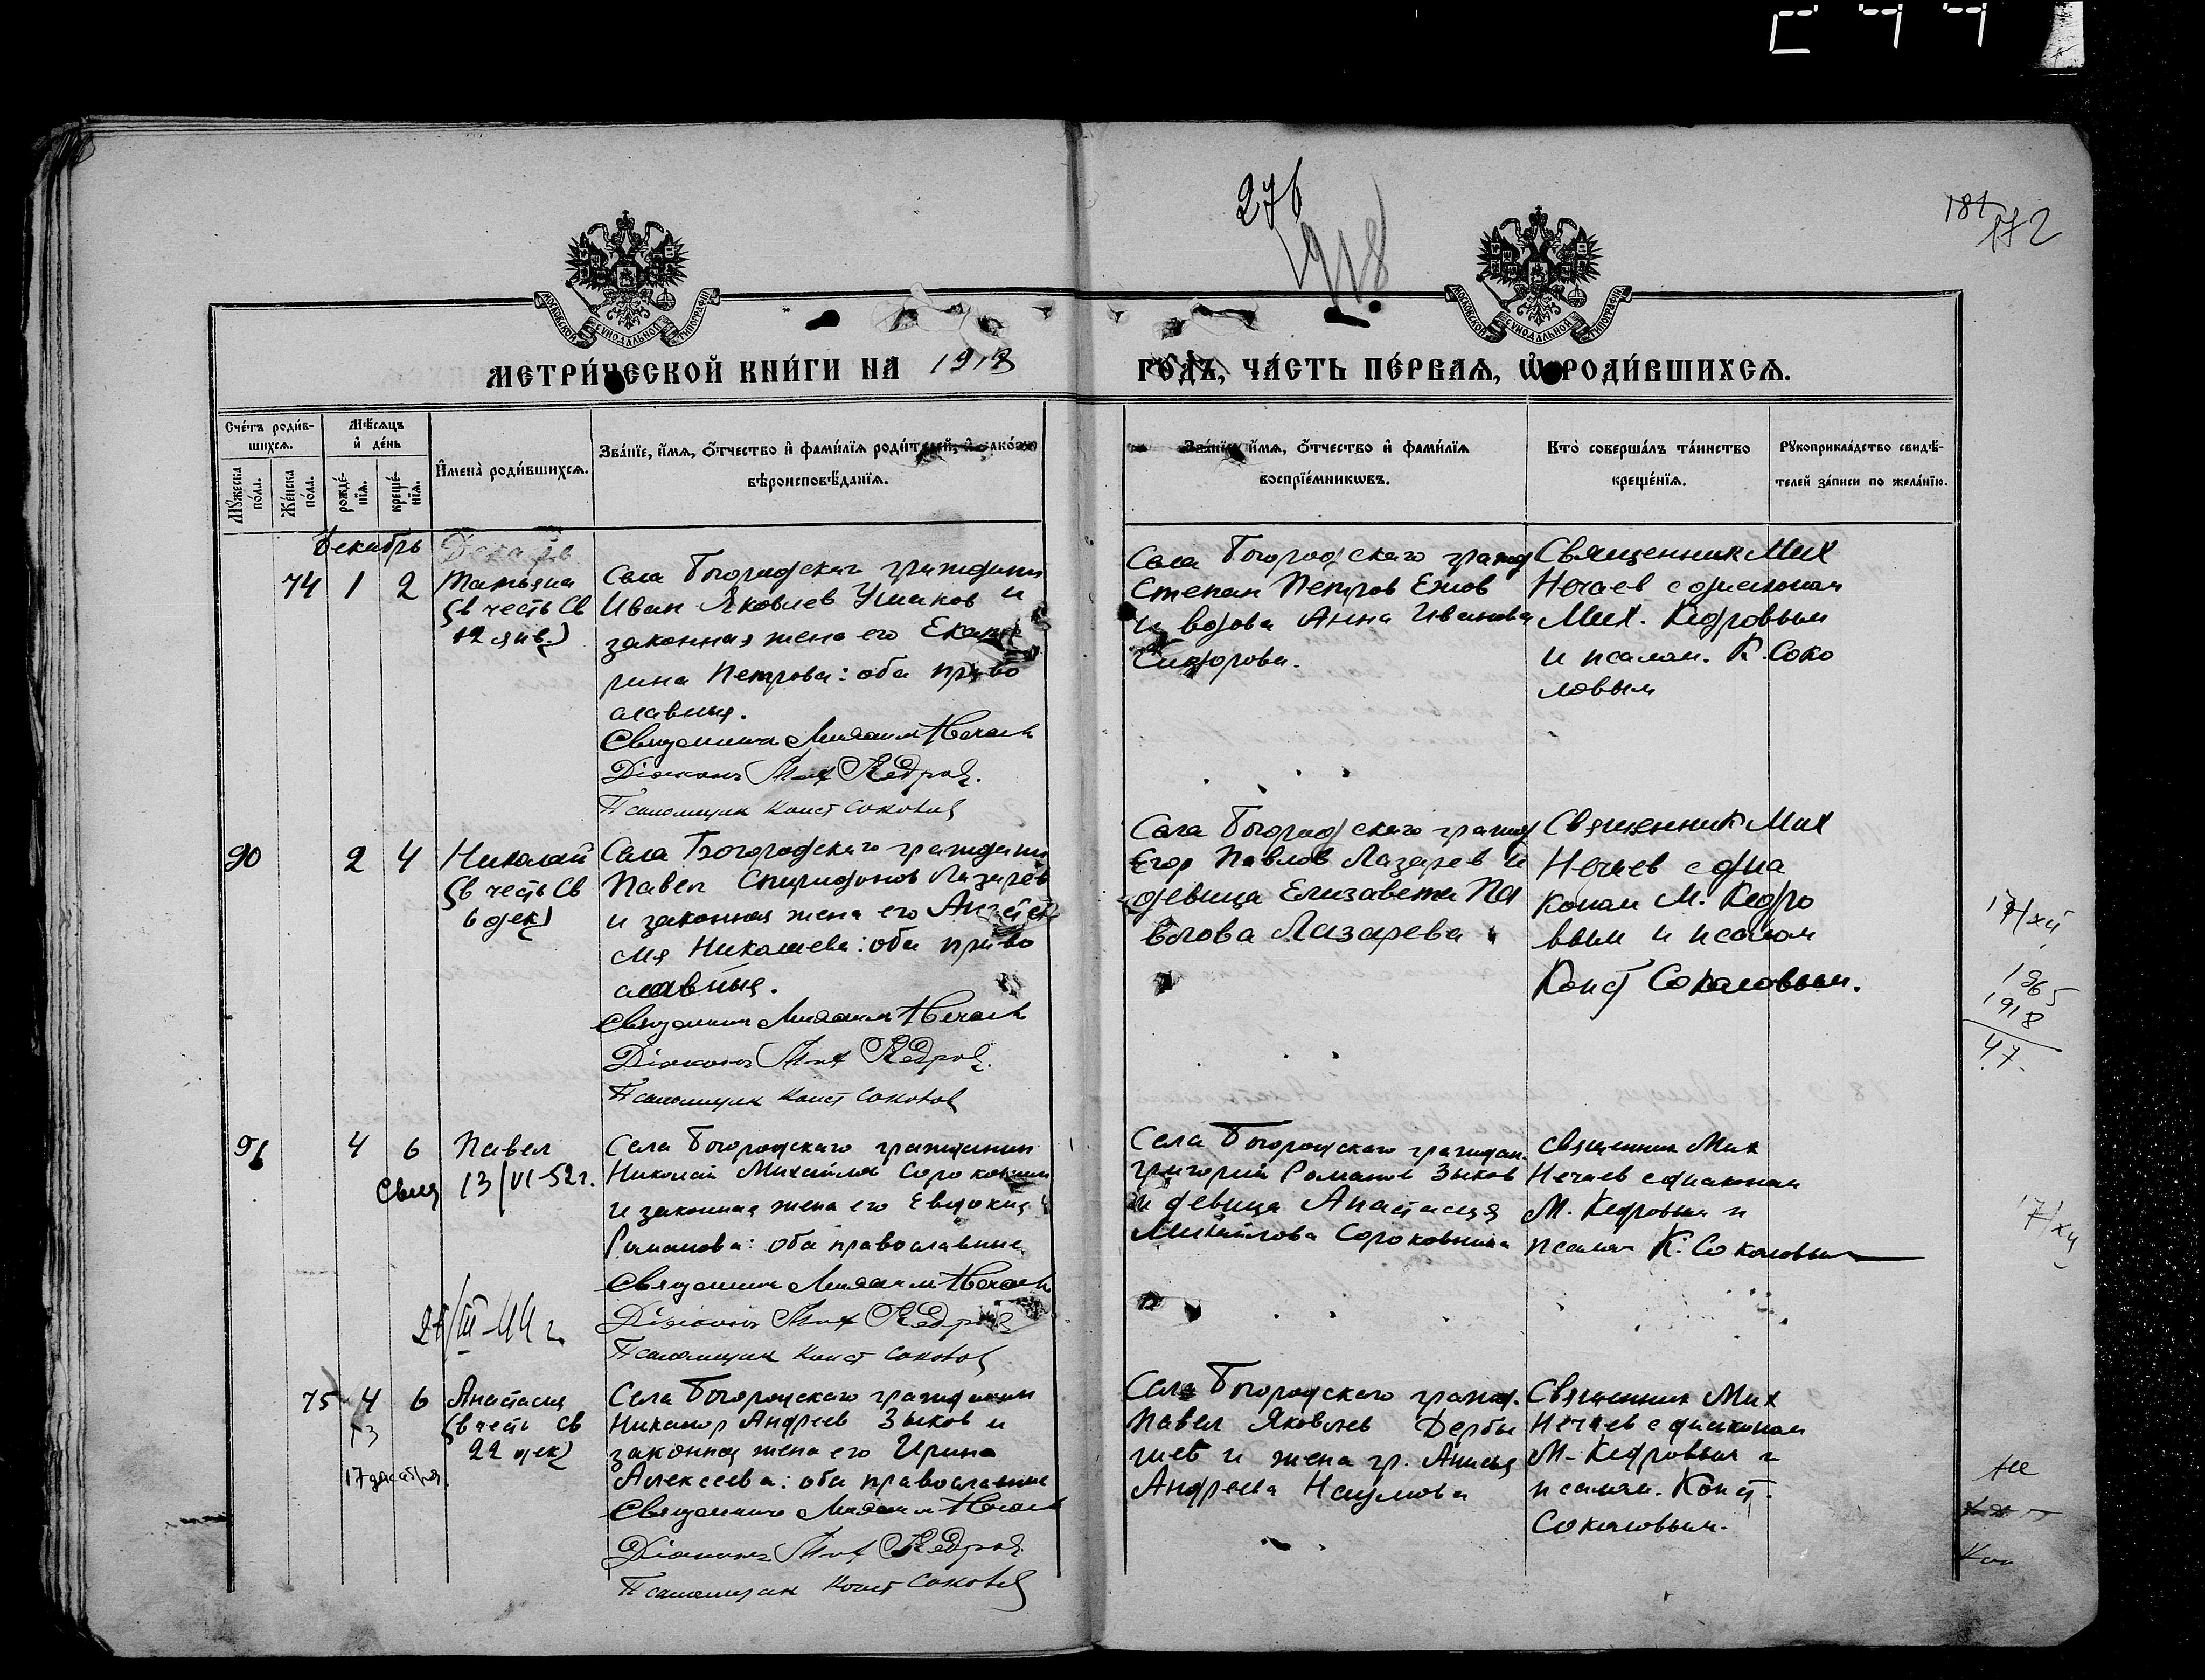 276
1918
181
172
МОСКОВСКОЙ СѴНОДАЛЬНОЙ ТИПОГРАФІИ
МОСКОВСКОЙ СѴНОДАЛЬНОЙ ТИПОГРАФІИ
МЕТРИ́ЧЕСКОЙ КНИ́ГИ НА 1918 ГО́ДЪ, ЧА́СТЬ ПЕ́РВАѦ, Ѡ҆ РОДИ́ВШИХСѦ.
Сче́тъ роди́в-
шихсѧ.
Мꙋ́жеска по́ла.
Же́нска по́ла.
Мѣ́сѧцъ и҆ де́нь
рожде́-нїѧ.
креще́-нїѧ.
И҆мена̀ роди́вшихсѧ.
Зва́нїе, и҆́мѧ, ѻ҆́тчество и҆ фами́лїѧ роди́телей, и҆ како́гѡ
вѣроисповѣ́данїѧ.
Зва́нїе, и҆́мѧ, ѻ҆́тчество и҆ фами́лїѧ
воспрїе́мникѡвъ.
Кто̀ соверша́лъ та́инство
креще́нїѧ.
Рꙋкоприкла́дство свидѣ́-
телей за́писи по жела́нїю.
Декабрь
74 1 2
Татьяна
(в честь Св
12 янв.)
Села Богородскаго гражданин
Иван Яковлев Ушаков и
законная жена его Екате
рина Петрова: оба право
славныя.
Священник Михаил Нечаев
Діаконъ Мих Кедров.
Псаломщик Конст Соколов
Села Богородскаго гражд
Степан Петров Ежов
и вдова Анна Иванова
Сидорова.
Священник Мих
Нечаев с диаконом
Мих. Кедровым
и псалом. К. Соко
ловым
90 2 4
Николай
(в честь Св
6 дек)
Села Богородскаго гражданин
Павел Спиридонов Лазарев
и законная жена его
Николаева: оба право
славныя.
Священник Михаил Нечаев
Діаконъ Мих Кедров.
Псаломщик Конст Соколов
Села Богородскаго гражд
Егор Павлов Лазарев и
девица Елизавета Па
влова Лазарева
Священник Мих
Нечаев с диа
коном М. Кедро
вым и псалом
Конст Соколовым.
17/XII
1965
1918
47.
91 4 6
Павел
13/VI-52г.
Села Богородскаго гражданин
Николай Михайлов Сороковнин
и законная жена его Евдокия
Романова: оба православные
Священник Михаил Нечаев
Діаконъ Мих Кедров
Псаломщик Конст Соколов
Села Богородскаго граждан.
Григорий Романов Зыков
и девица Анастасия
Михайлова Сороковнина
Священник Мих
Нечаев с диаконом
М. Кедровым и
псалом К. Соколовым
17/XII
27/III-44 г.
75 4 6
17 декабря
Анастасия
(в честь Св
22 дек)
Села Богородскаго гражданин
Никанор Андреев Зыков и
законная жена его Ирина
Алексеева: оба православные
Священник Михаил Нечаев
Діаконъ Мих Кедров
Псаломщик Конст Соколов
Села Богородскаго гражд.
Павел Яковлев Дербы
шев и жена гр. Анисья
Андреева Наумова
Священник Мих
Нечаев с диаконом
М. Кедровым и
псалом. Конст.
Соколовым.